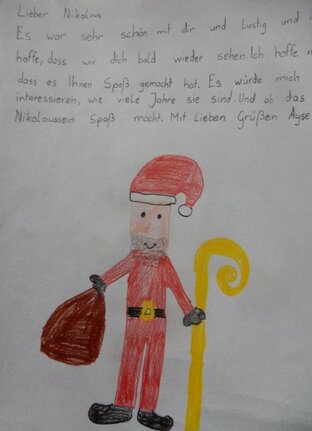 Lieber Nikolaus
Es war sehr schön mit dir und Lustig und i
hoffe, dass wir dich bald wieder sehen. Ich hoffe
dass es Ihnen Spaß gemacht hat. Es würde mich
interessieren, wie viele Jahre sie sind. Und ob das
Nikolaussein Spaß macht. Mit Lieben Grüßen Ayse